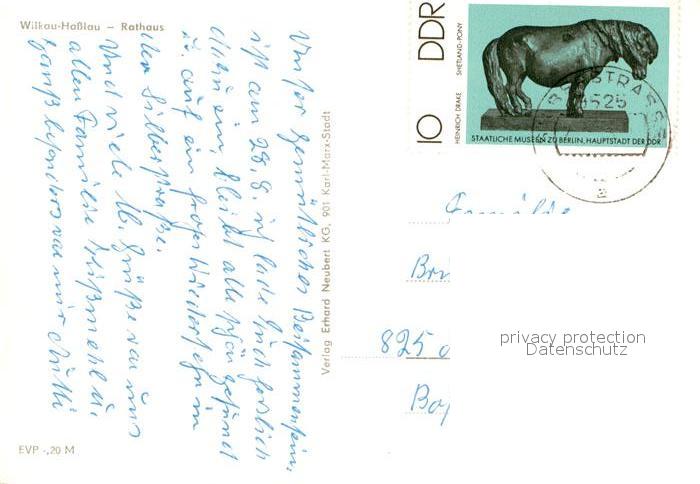 Wilkau-Haßlau – Rathaus
Unser gemütliches Beisammensein,
ist am 28.8. ich lade Euch herzlich
dazu ein bleibt alle schön gesund
u. auf ein frohes Wiedersehn in
der Silberstraße.
Und viele lb. Grüße von uns
allen Familie u.
ganz besonders von mir
EVP -,20 M
Verlag Erhard Neubert KG, 901 Karl-Marx-Stadt
DDR
10
HEINRICH DRAKE SHETLAND-PONY
STAATLICHE MUSEEN ZU BERLIN, HAUPTSTADT DER DDR
9525
a
Familie
Br
825
Bo
privacy protection
Datenschutz